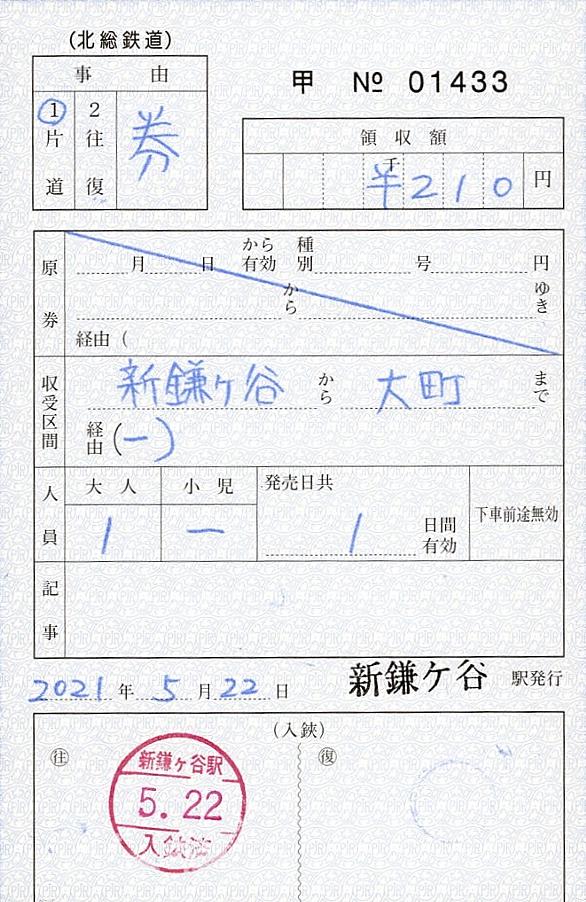 (北総鉄道)
事由
1片道 2往復 券
甲 № 01433
領収額
千
半210円
原券
月 日から有効 種別 号 円
から ゆき
経由(
収受区間
新鎌ヶ谷から大町まで
経由(一)
人員
大人 小児 発売日共
1 一 1日間有効 下車前途無効
記事
2021年5月22日 新鎌ケ谷駅発行
(入鋏)
往 復
新鎌ヶ谷駅
5.22
入鋏済